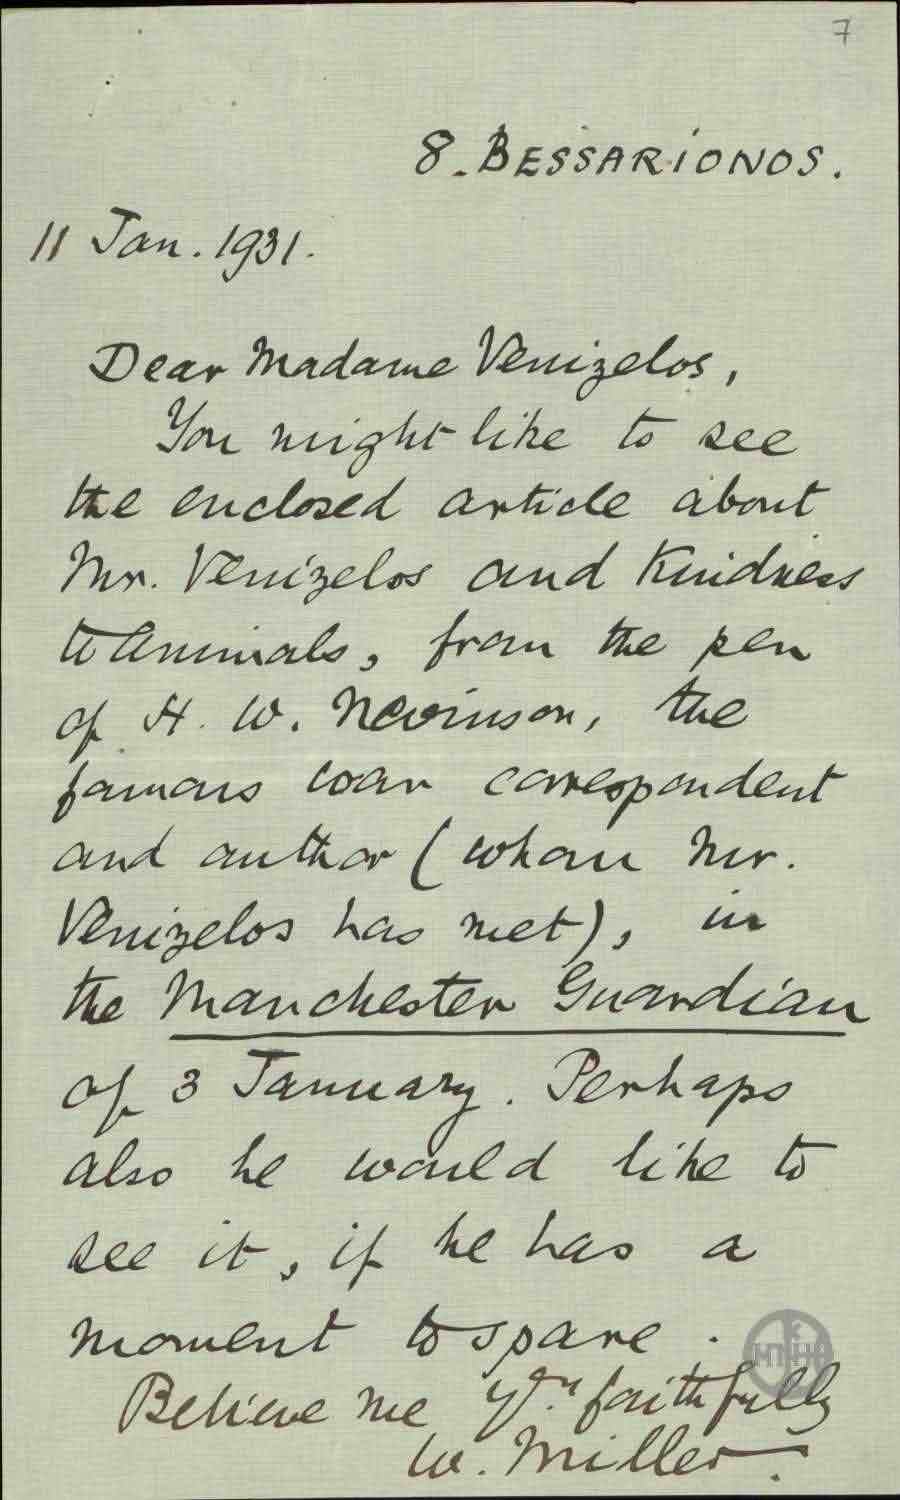 7
8. BESSARIONOS.
11 Jan. 1931.
Dear Madame Venizelos,
You might like to see
the enclosed article about
Mr. Venizelos and Kindness
to Animals, from the pen
of H. W. Nevinson, the
famous war correspondent
and author (whom Mr.
Venizelos has met), in
the Manchester Guardian
of 3 January. Perhaps
also he would like to
see it, if he has a
moment to spare.
Believe me Yrs. faithfully
W. Miller.